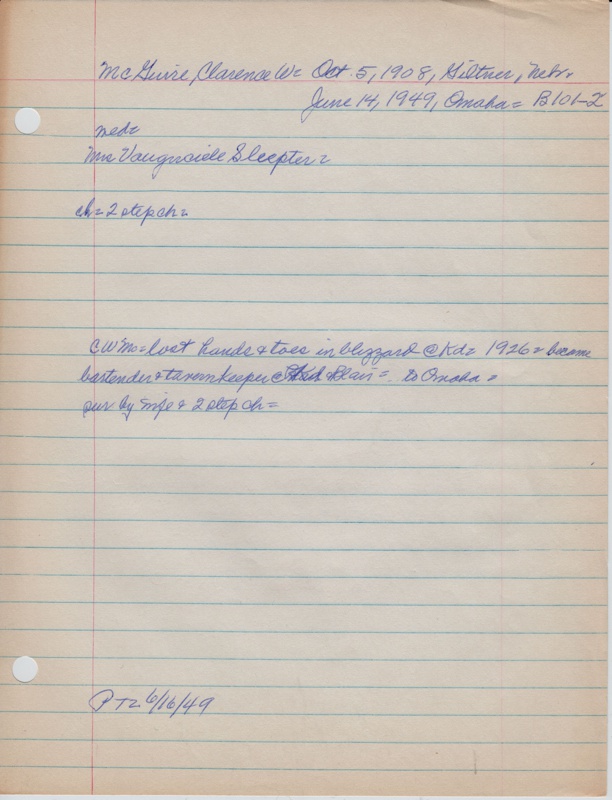 McGuire, Clarence W= Oct. 5, 1908, Giltner, Nebr.
June 14, 1949, Omaha= B101-Z
med=
Mrs Sleepter=
ch= 2 step ch=
CW Mc= lost hands & toes in blizzard @ Kd= 1926= became
bartender & tavernkeeper @ Blair= to Omaha=
sur by wife & 2 step ch=
PT= 6/16/49